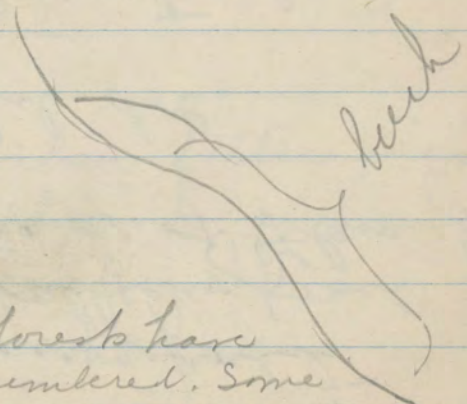 beech
forests have
umbered. Some